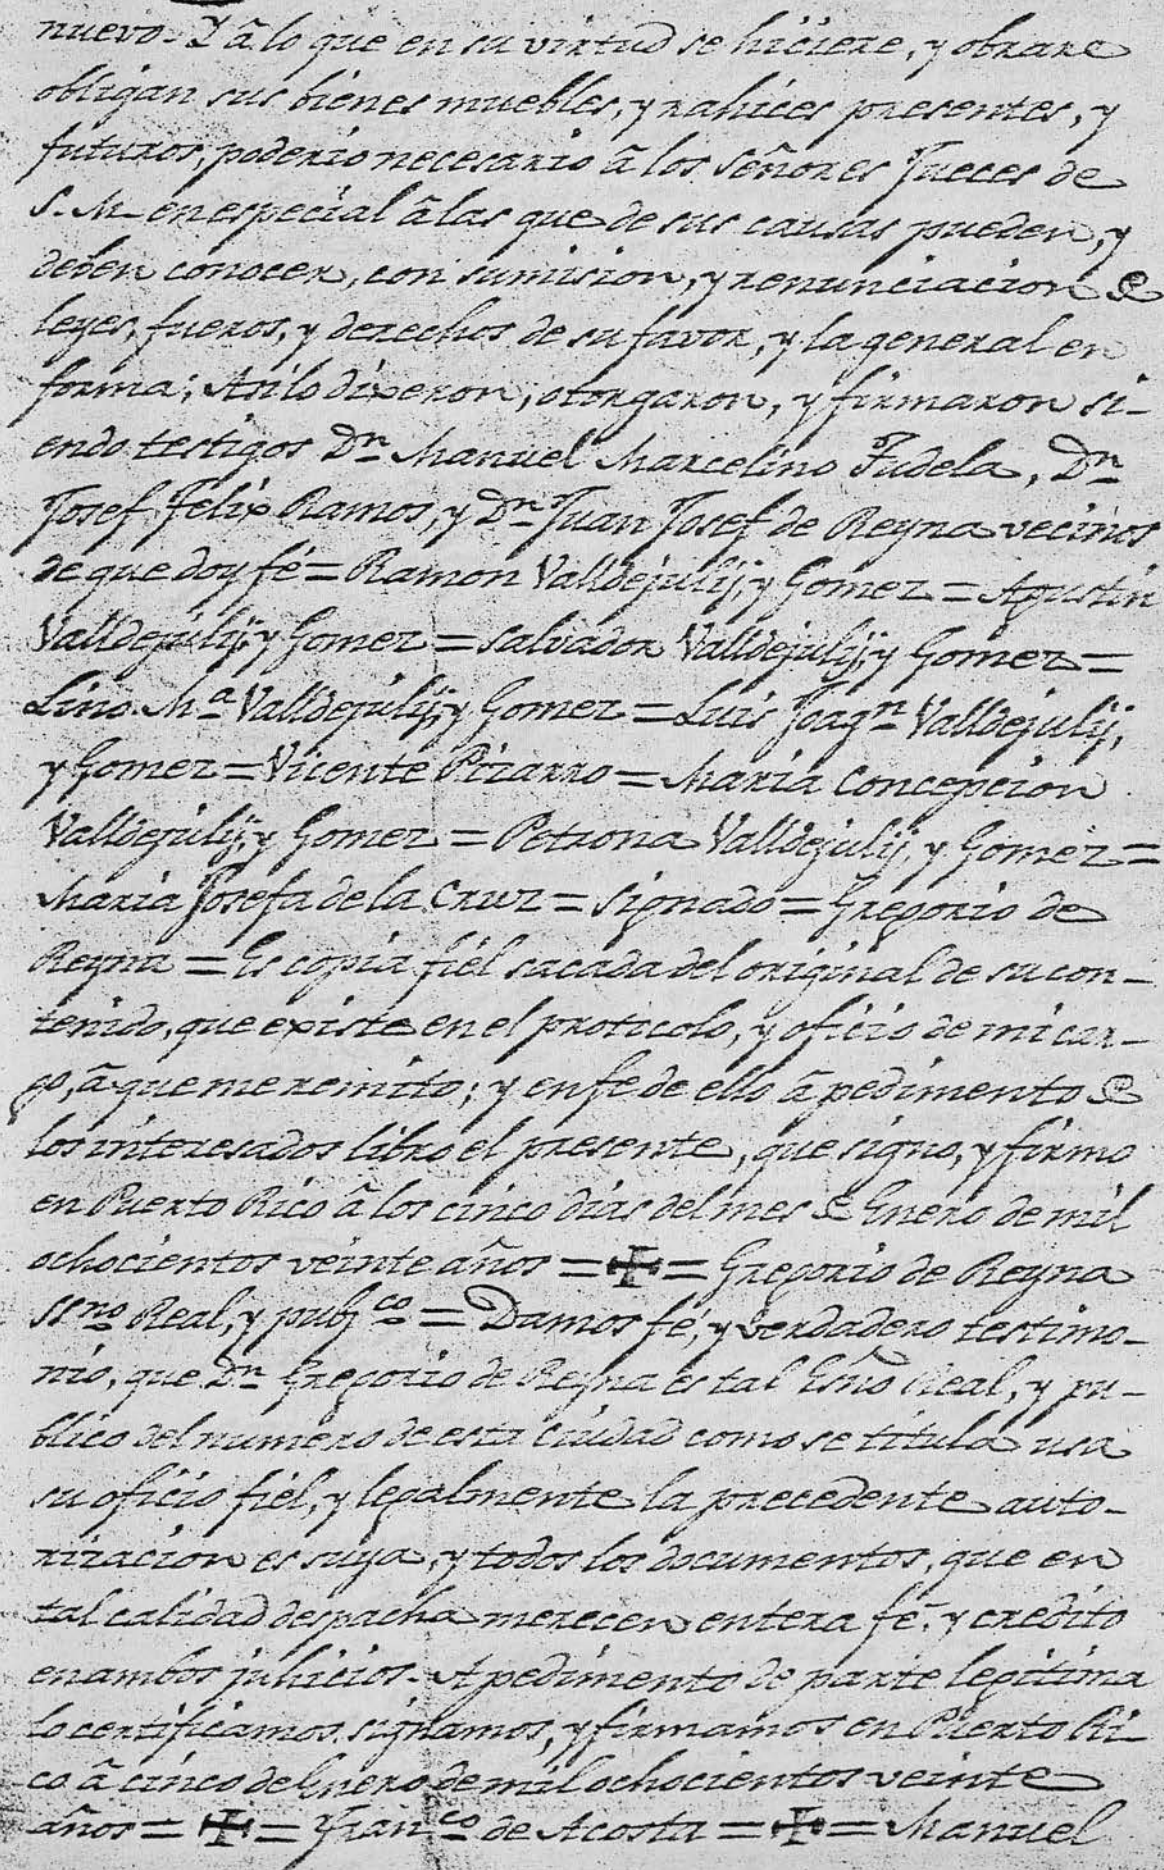 nuevo. Y â lo que en su virtud se hiciere, y obrare
obligan sus bienes muebles, y rahices presentes, y
futuros, poderio necesario â los señores Jueces de
S. M. en especial â las que de sus causas pueden, y
deben conocer, con sumision, y renunciacion de
leyes, fueros, y derechos de su favor, y la general en
forma; Asi lo dixeron, otorgaron, y firmaron si-
endo testigos Dn Manuel Marcelino Tudela, Dn
Josef Felix Ramos, y Dn Juan Josef de Reyna vecinos
de que doy fé = Ramon Valldejulij, y Gomez = Agustin
Valldejulij, y Gomez = Salvador Valldejulij, y Gomez =
Lino Ma Valldejulij, y Gomez = Luis Joaqn Valldejulij,
y Gomez = Vicente Pizarro = Maria Concepcion
Valldejulij, y Gomez = Petrona Valldejulij, y Gomez =
Maria Josefa de la Cruz = Signado = Gregorio de
Reyna = Es copia fiel sacada del original de su con-
tenido, que existe en el proticolo, y oficio de mi car-
go, â que me remito; y en fe de ello â pedimento de
los interesados libro el presente, que signo, y firmo
en Puerto Rico â los cinco dias del mes de Enero de mil
ochocientos veinte años = ✠ = Gregorio de Reyna
SSno Real, y pubco = Damos fé, y verdadero testimo-
nio, que Dn Gregorio de Reyna es tal Esño Real, y pu-
blico del numero de esta Ciudad como se titula usa
su oficio fiel, y legalmente la precedente auto-
rizacion es suya, y todos los documentos, que en
tal calidad despacha merecen entera fé, y credito
en ambos juhicios. A pedimento de parte legitima
lo certificamos, signamos, y firmamos en Puerto Ri-
co â cinco de Enero de mil ochocientos veinte
años = ✠ = Franco de Acosta = ✠ = Manuel